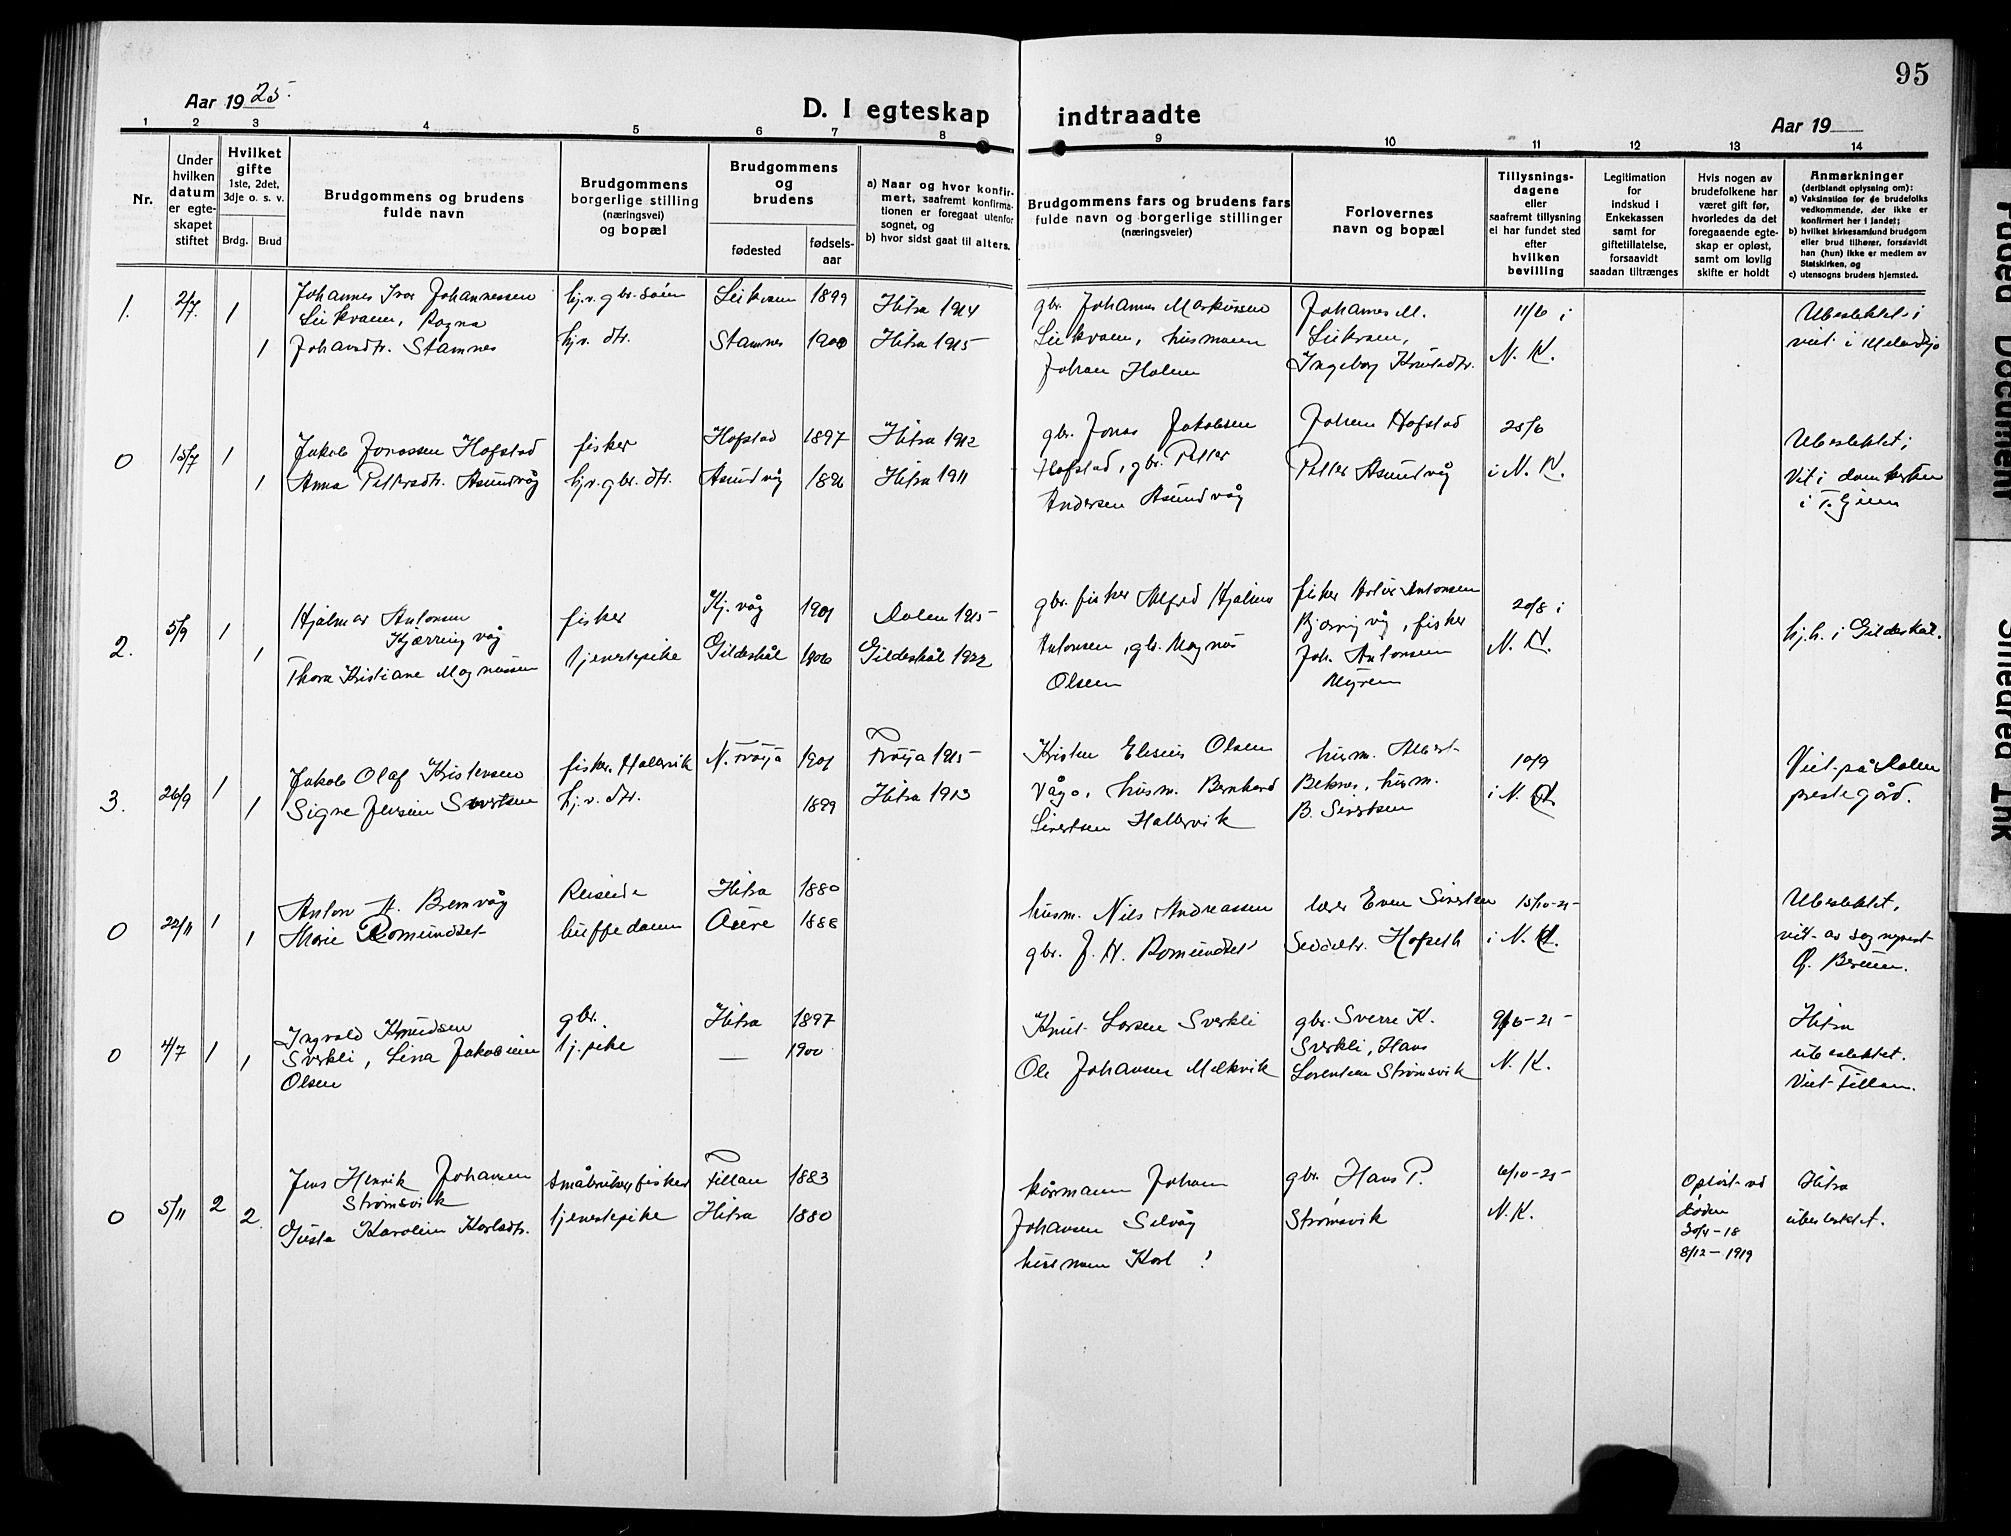 95
Aar 1925.
D. I egteskap indtraadte
Aar 19
1 2 3 4 5 6 7 8 9 10 11 12 13 14
Nr.
Under hvilken datum er egte-skapet stiftet
Hvilket gifte
1ste, 2det, 3dje o. s. v.
Brdg. Brud
Brudgommens og brudens fulde navn
Brudgommens borgerlige stilling (næringsvei) og bopæl
Brudgommens og brudens
fødested
fødsels-aar
a) Naar og hvor konfir-mert, saafremt konfirma-tionen er foregaat utenfor sognet, og
b) hvor sidst gaat til alters.
Brudgommens fars og brudens fars fulde navn og borgerlige stillinger (næringsveier)
Forlovernes navn og bopæl
Tillysnings-dagene eller saafremt tillysning ei har fundet sted efter hvilken bevilling
Legitimation for indskud i Enkekassen samt for giftetillatelse, forsaavidt saadan tiltrænges
Hvis nogen av brudefolkene har været gift før, hvorledes da det foregaaende egte-skap er opløst, samt om lovlig skifte er holdt
Anmerkninger
(deriblandt oplysning om):
a) Vaksination for de brudefolks vedkommende, der ikke er konfirmert her i landet;
b) hvilket kirkesamfund brudgom eller brud tilhører, forsaavidt han (hun) ikke er medlem av Statskirken, og
c) utensogns brudens hjemsted.
1. 2/7. 1 Johannes Ivar Johannessen hj.v. gbr. søn 1899 Hitra 1914 gbr. Johannes Markussen Johannes M. 11/6 i Ubeslektet;
Ragna
1 Johansdtr. Stamnes hj.v. dtr. Stamnes 1900 Hitra 1915 husmann N. K.
Johan Holm Ingeborg Knutsdtr.
0 15/7 1 Jakob Jonassen Hofstad fisker Hofstad 1897 Hitra 1912 gbr. Jonas Jakobsen Johan Hofstad 25/6 Ubeslektet;
1 Anna Pettersdtr. Asundvåg hj.v. gbr. dtr. Asundvåg 1896 Hitra 1911 Hofstad, gbr. Petter Petter Asundvåg i N. K. Vit i domkirken
Andersen Asundvåg i
2. 5/9 1 Hjalmar Antonsen fisker Kj. våg 1901 Dolm 1915 gbr. fisker Alfred Hjalmar fisker Antonsen 20/8 i
Kjærringvåg fisker
1 Thora Kristiane Magnussen tjenestepike Gildeskål 1906 Gildeskål 1922 Antonsen, gbr. Magnus Joh. Antonsen N. K. hj.h. i Gildeskål.
Olsen Myren
3. 26/9 1 Jakob Olaf Kristensen fisker. Hallervik N. Frøya 1901 Frøya 1915 Olsen husm. Albert 10/9 Viet på Dolm
1 Signe hj.v. dtr. 1899 Hitra 1913 husm. Bernhard husm. i N. K. prestegård.
Sivertsen Hallervik B. Sivertsen
0 22/11 1 Anton A. Bremvåg Reisende Hitra 1880 husm. Nils Andreassen lærer Even Sivertsen 15/10-25 Ubeslektet,
1 Marie Romundset buffedame Aure 1888 gbr. J. H. Romundset Hofseth i N. K. vit av sogneprest
0 4/7 1 Ingvald Knudsen gbr. Hitra 1897 Knut Larsen Sverkli gbr. Sverre K. 9/6-25 Hitra
1 Sverkli, Lina Jakobine tj.pike — 1900 Sverkli, Hans ubeslektet.
Olsen Ole Johansen Melkvik Lorentsen Strømsvik N. K. Viet Fillan.
0 5/11 2 Jens Henrik Johansen småbruker fisker Fillan 1883 Johan gbr. Hans P. 6/10-25 Opløst ved Hitra
Strømsvik døden
2. Gusta Karoline Karlsdtr. tjenestepike Hitra 1880 Johansen Selvåg Strømsvik N. K. 30/4-18 ubeslektet.
husmann Karl ! 8/12-1919
Faded Document
Smeared Ink